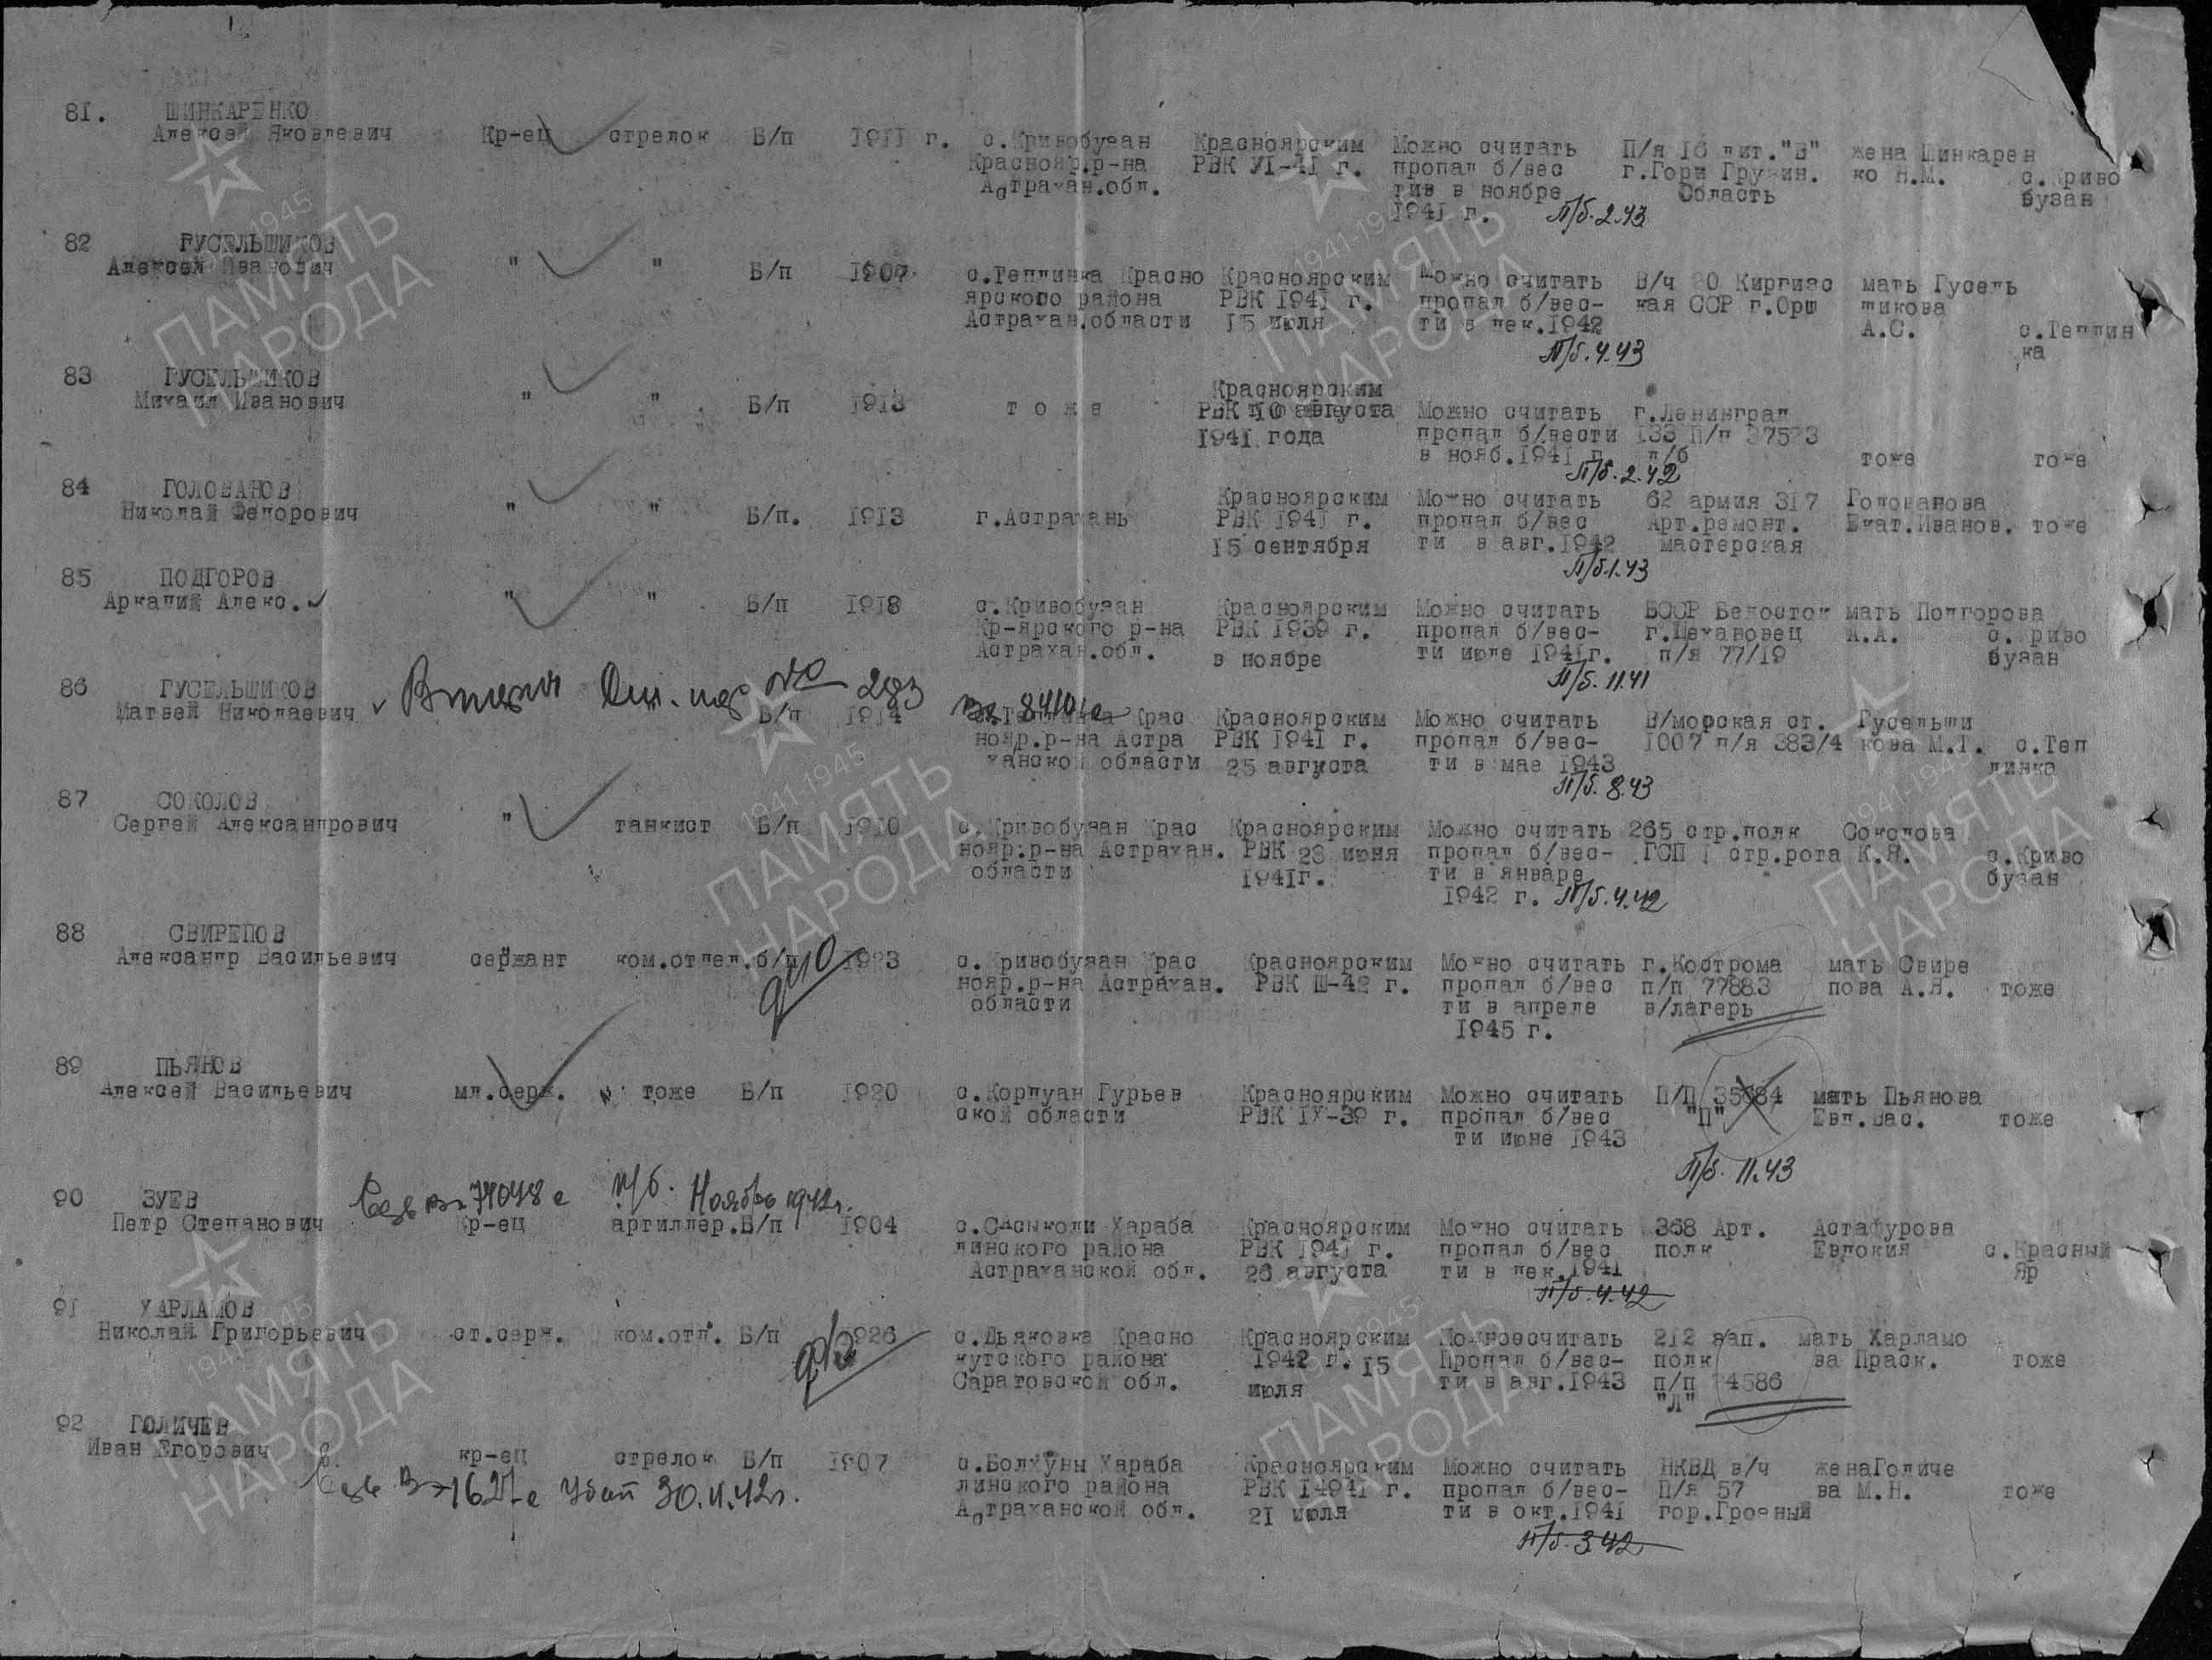 81. ШИНКАРЕНКО
Алексей Яковлевич Кр-ец стрелок Б/п 1911 г. с.Кривобузан Красноярским Можно считать П/я 16 лит."В" жена Шинкарен
Краснояр.р-на РВК УI-41 г. пропал б/вес г.Гори Грузин. ко Н.М. с.Криво
Астрахан.обл. тив в ноябре Область бузан
1941 г. П/б.2.43
82 ГУСЕЛЬЩИКОВ
Алексей Иванович " " Б/п 1907 с.Теплинка Красно Красноярским Можно считать В/ч Киргизс мать Гусель
ярского района РВК 1941 г. пропал б/вес- кая ССР г.Орш щикова
Астрахан.области 15 июля ти в дек.1942 А.С. с.Теплин
П/б.4.43 ка
83 ГУСЕЛЬЩИКОВ Красноярским
Михаил Иванович " " Б/п 1913 т о ж е РВК 10 августа Можно считать г.Ленинград
1941 года пропал б/вести 133 П/п
в нояб.1941 г. п/б тоже тоже
П/б.2.42
84 ГОЛОВАНОВ Красноярским Можно считать 62 армия 317 Голованова
Николай Федорович " " Б/п. 1913 г.Астрахань РВК 1941 г. пропал б/вес Арт.ремонт. Екат.Иванов. тоже
15 сентября ти в авг.1942 мастерская
П/б.1.43
85 ПОДГОРОВ
Аркадий Алекс. " " Б/п 1918 с.Кривобузан Красноярским Можно считать БССР Белосток мать Подгорова
Кр-ярского р-на РВК 1939 г. пропал б/вес- г.Цехановец А.А. с. риво
Астрахан.обл. в ноябре ти июле 1941г. п/я 77/19 бузан
П/б.11.41
86 ГУСЕЛЬЩИКОВ 283
Матвей Николаевич Б/п 1914 с.Теплинка Крас Красноярским Можно считать В/морская ст. Гусельщи
нояр.р-на Астра РВК 1941 г. пропал б/вес- 1007 п/я 383/4 кова М.Т. с.Теп
ханской области 25 августа ти в мае 1943 линка
П/б.8.43
87 СОКОЛОВ
Сергей Александрович " танкист Б/п 1910 с.Кривобузан Крас Красноярским Можно считать 265 стр.полк Соколова
нояр.р-на Астрахан. РВК 23 июня пропал б/вес- ГСП 1 стр.рота К.Я. с.Криво
области 1941г. ти в январе бузан
1942 г. П/б.4.42
88 СВИРЕПОВ
Александр Васильевич сержант ком.отдел.б/п 1923 с. ривобузан Крас Красноярским Можно считать г.Кострома мать Свире
нояр.р-на Астрахан. РВК Ш-42 г. пропал б/вес п/п 77883 пова А.Я. тоже
области ти в апреле в/лагерь
1945 г.
89 ПЬЯНОВ
Алексей Васильевич мл.серж. тоже Б/п 1920 с.Кордуан Гурьев Красноярским Можно считать П/П 35684 мать Пьянова
ской области РВК IX-39 г. пропал б/вес "П" Евд.Вас. тоже
ти июне 1943
П/б. 11.43
90 ЗУЕВ п/б. Ноябрь 1942г.
Петр Степанович Кр-ец артиллер.Б/п 1904 с.Сасыколи Хараба Красноярским Можно считать 368 Арт. Астафурова
линского района РВК 1941 г. пропал б/вес полк Евдокия с.Красный
Астраханской обл. 26 августа ти в дек.1941 Яр
П/б.4.42
91 ХАРЛАМОВ
Николай Григорьевич ст.серж. ком.отд. Б/п 1926 с.Дьяковка Красно Красноярским Можноесчитать 212 зап. мать Харламо
кутского района 1942 г. 15 Пропал б/вес- полк ва Праск. тоже
Саратовской обл. июля ти в авг.1943 п/п 74586
"Л"
92 ГОЛИЧЕВ
Иван Егорович кр-ец стрелок Б/п 1907 с.Болхуны Хараба Красноярским Можно считать НКВД в/ч женаГоличе
убит 30.11.42г. линского района РВК 14941 г. пропал б/вес- П/я 57 ва М.Н. тоже
Астраханской обл. 21 июля ти в окт.1941 гор.Грозный
П/б.3.42
1941-1945
ПАМЯТЬ
НАРОДА